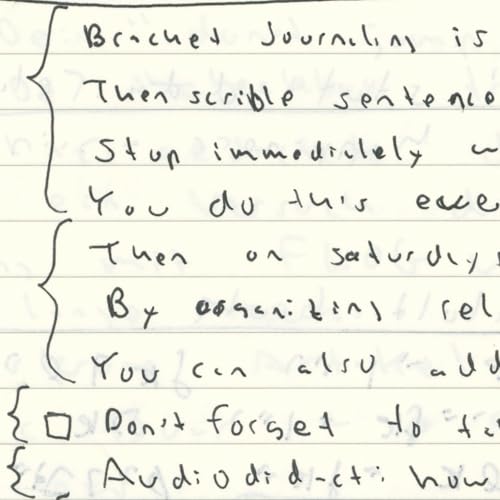 Bracket Journaling is
Then scrible sentence
Stop immediately w
You do this exce
Then on saturdays
By organizing rel
You can also add
Don't forget to ta
Audiodidact: how